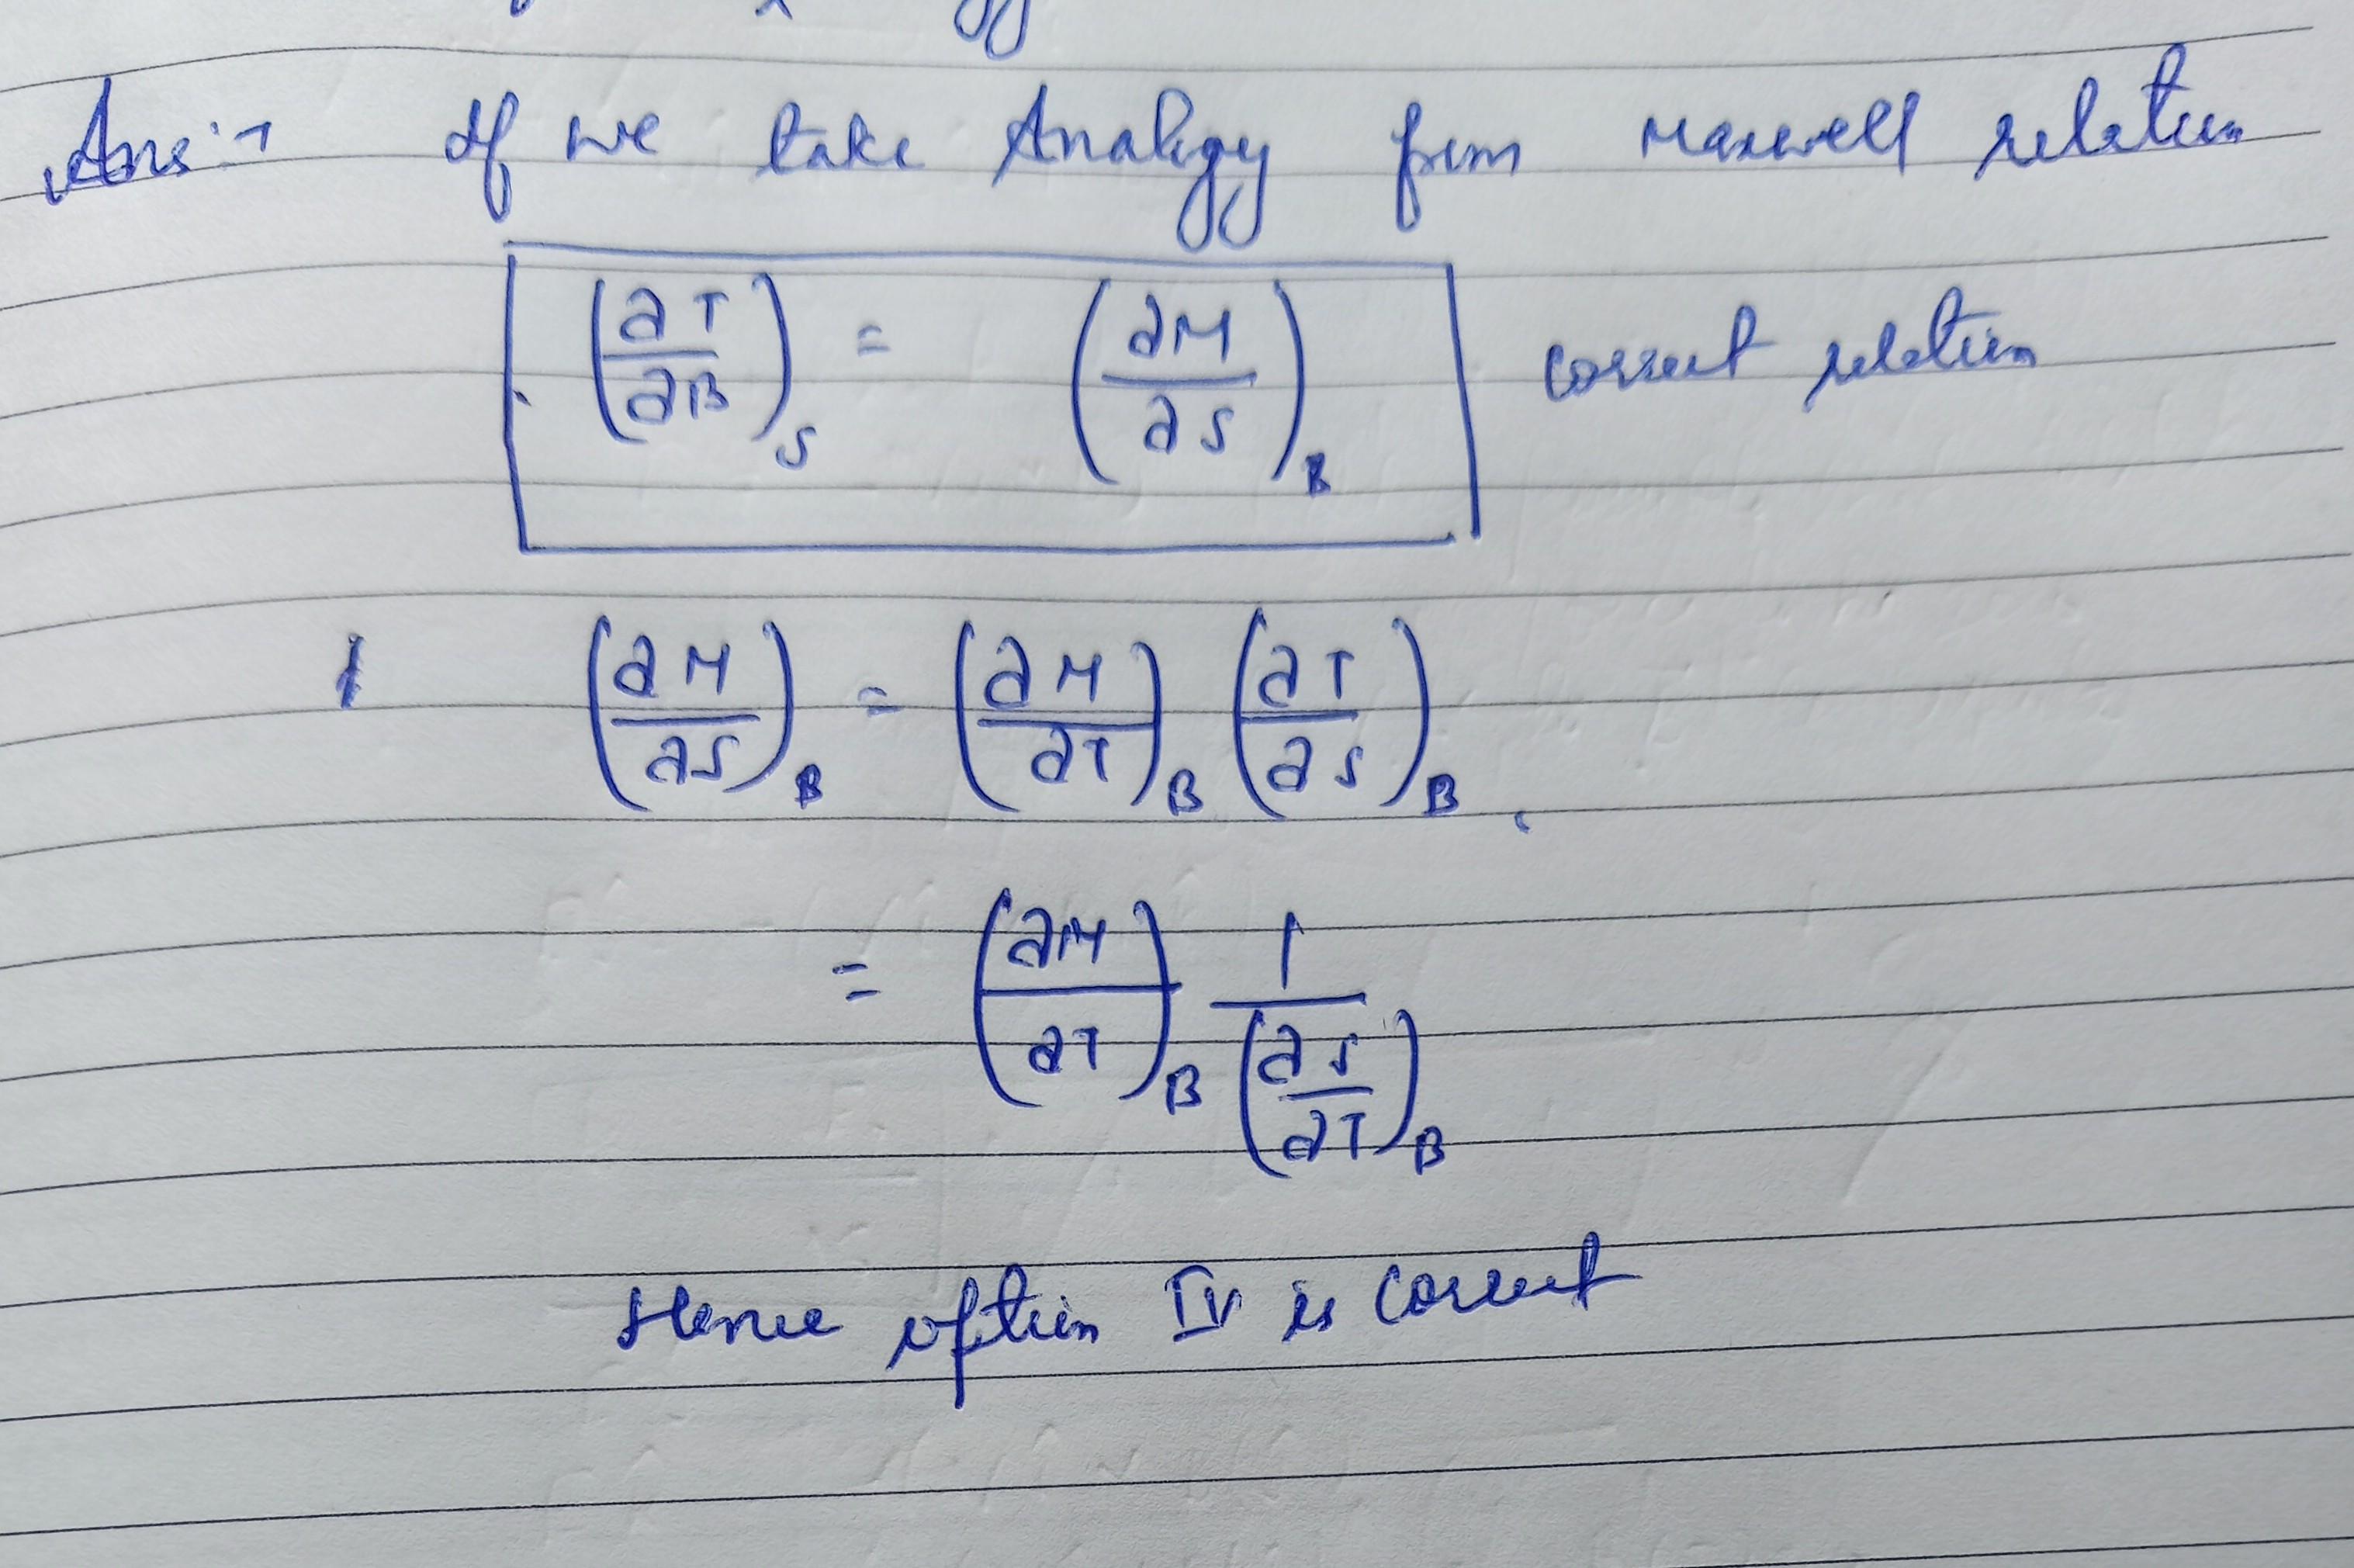 Ans:→ If we take Analogy from Maxwell relation
(∂T/∂B)_S = (∂M/∂S)_B correct relation
(∂M/∂S)_B = (∂M/∂T)_B (∂T/∂S)_B
= (∂M/∂T)_B 1/(∂S/∂T)_B
Hence option IV is correct